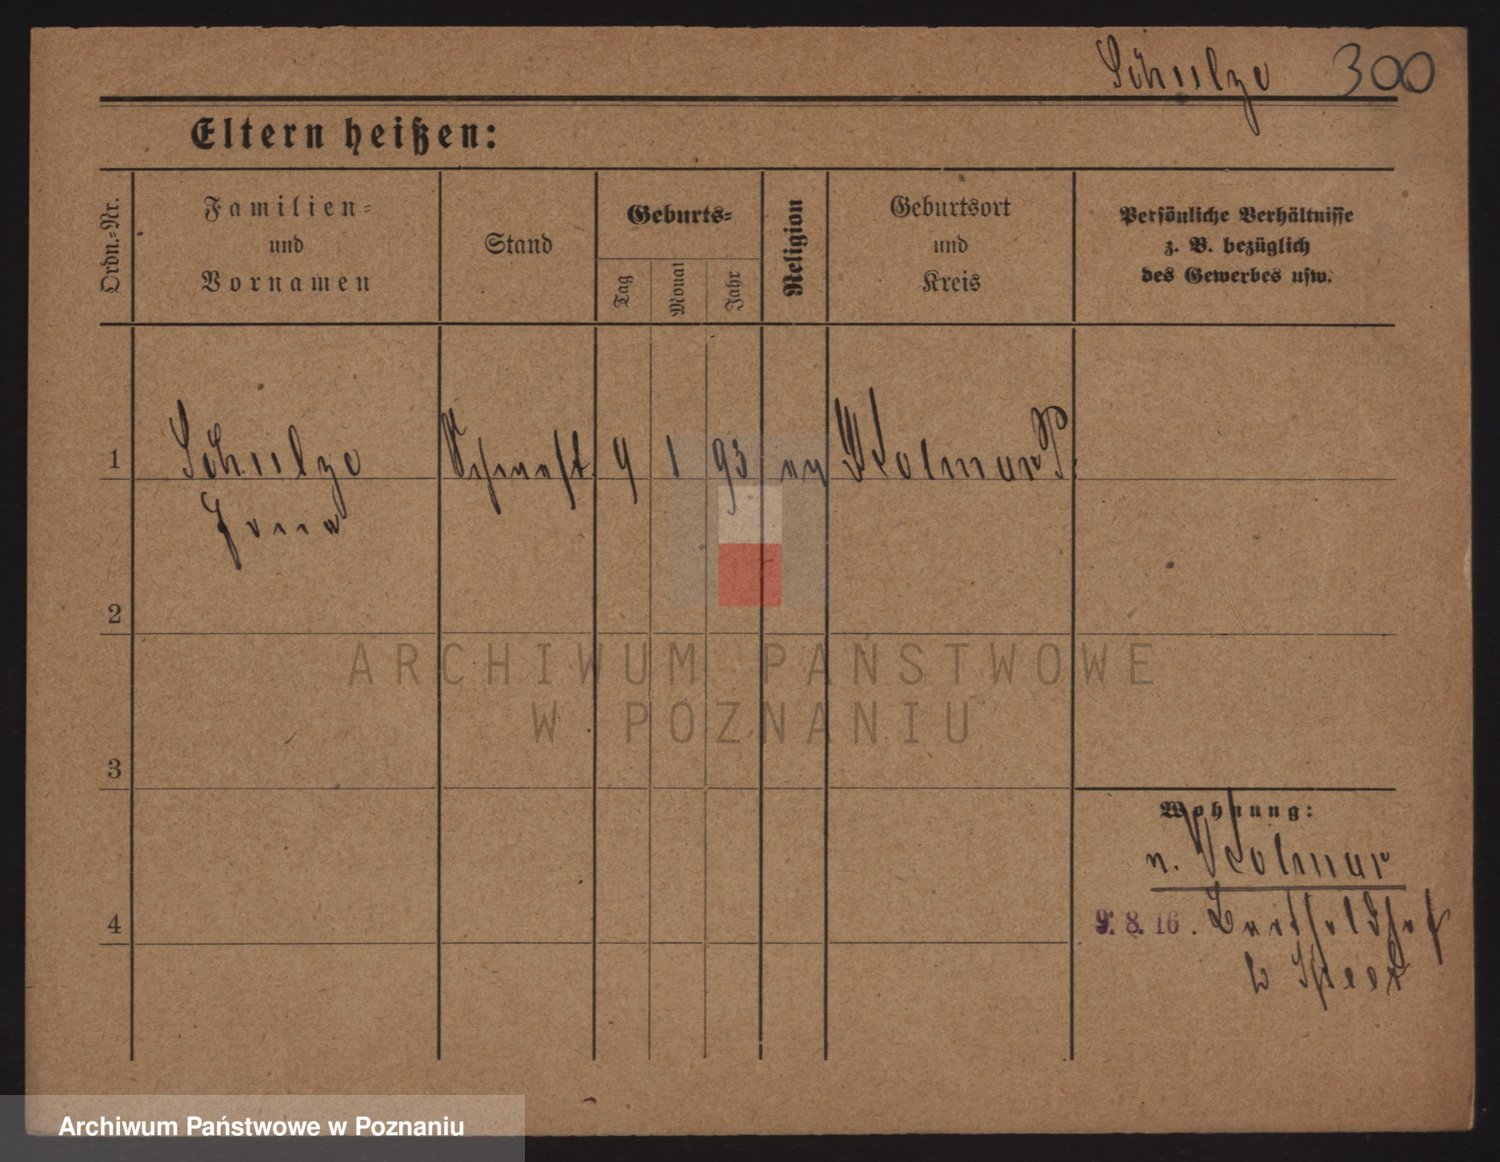 Schulze 300
Eltern heißen:
Ordn.-Nr.
Familien-
und
Vornamen
Stand
Geburts-
Tag
Monat
Jahr
Religion
Geburtsort
und
Kreis
Persönliche Verhältnisse
z. B. bezüglich
des Gewerbes usw.
1 Schulze 9 1 93 ev Kolmar P.
2
3
4
Wohnung:
n. Kolmar
9. 8. 16.
ARCHIWUM PAŃSTWOWE
W POZNANIU
Archiwum Państwowe w Poznaniu